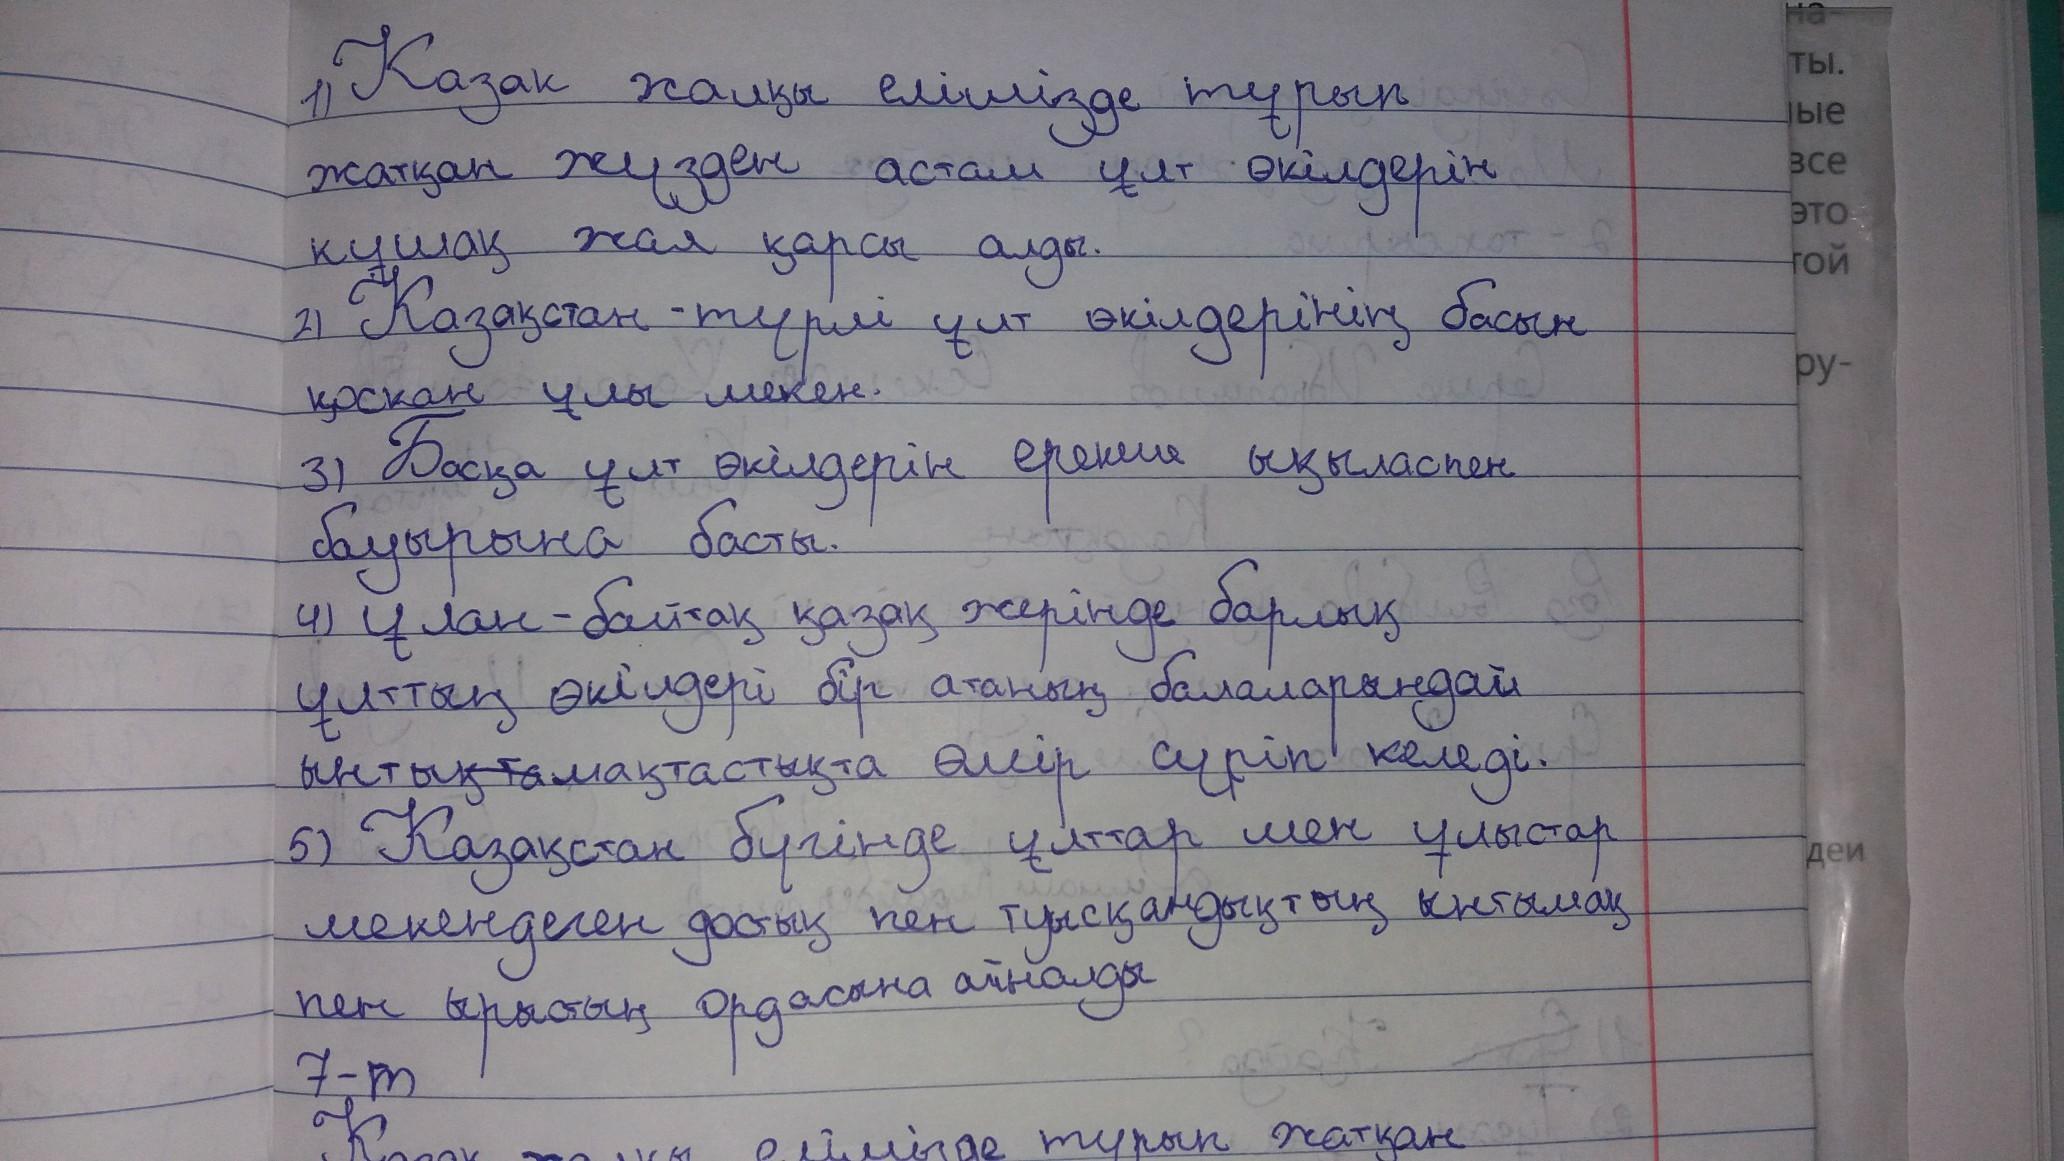 1) Казак жалқы елімізде тұрып
жатқан жүзден астам ұлт өкілдерін
құшақ жая қарсы алды.
2) Казақстан - түрлі ұлт өкілдерінің басын
қоскан ұлы мекен.
3) Басқа ұлт өкілдерін ерекше ықыласпен
бауырына басты.
4) Ұлан - байтақ қазақ жерінде барлық
ұлттың өкілдері бір атаның балаларындай
ынтықтамақтастықта өмір сүріп келеді.
5) Казақстан бүгінде ұлттар мен ұлыстар
мекендеген достық пен туысқандықтың ынтымақ
пен ырыстың ордасына айналды
7-т
елімізде тұрып жатқан
на-
ты.
ые
все
это
той
ру-
деи